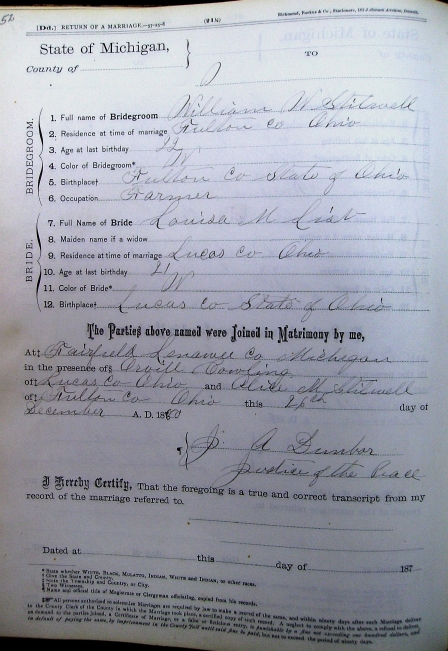 52
[D4.] RETURN OF A MARRIAGE.—57-25-8 (214) Richmond, Backus & Co., Stationers, 183 Jefferson Avenue, Detroit.
State of Michigan, } TO
County of
BRIDEGROOM.
1. Full name of Bridegroom William W Stilwell
2. Residence at time of marriage Fulton Co Ohio
3. Age at last birthday 22
4. Color of Bridegroom* W
5. Birthplace† Fulton Co State of Ohio
6. Occupation Farmer
BRIDE.
7. Full Name of Bride Louisa M
8. Maiden name if a widow
9. Residence at time of marriage Lucas Co Ohio
10. Age at last birthday 21
11. Color of Bride* W
12. Birthplace† Lucas Co State of Ohio
The Parties above named were Joined in Matrimony by me,
At‡ Fairfield Lenawee Co Michigan
in the presence of§ Orvill Cowling
of‡ Lucas Co Ohio and Alice M Stilwell
of‡ Fulton Co Ohio this 26th day of
December A. D. 1880
J. A Dunbar
Justice of the Peace
I Hereby Certify, That the foregoing is a true and correct transcript from my
record of the marriage referred to.
Dated at this day of 187
* State whether WHITE, BLACK, MULATTO, INDIAN, WHITE and INDIAN, or other races.
† Give the State and County.
‡ State the Township and County, or City.
§ Two Witnesses.
¶ Name and official title of Magistrate or Clergyman officiating, copied from his records.